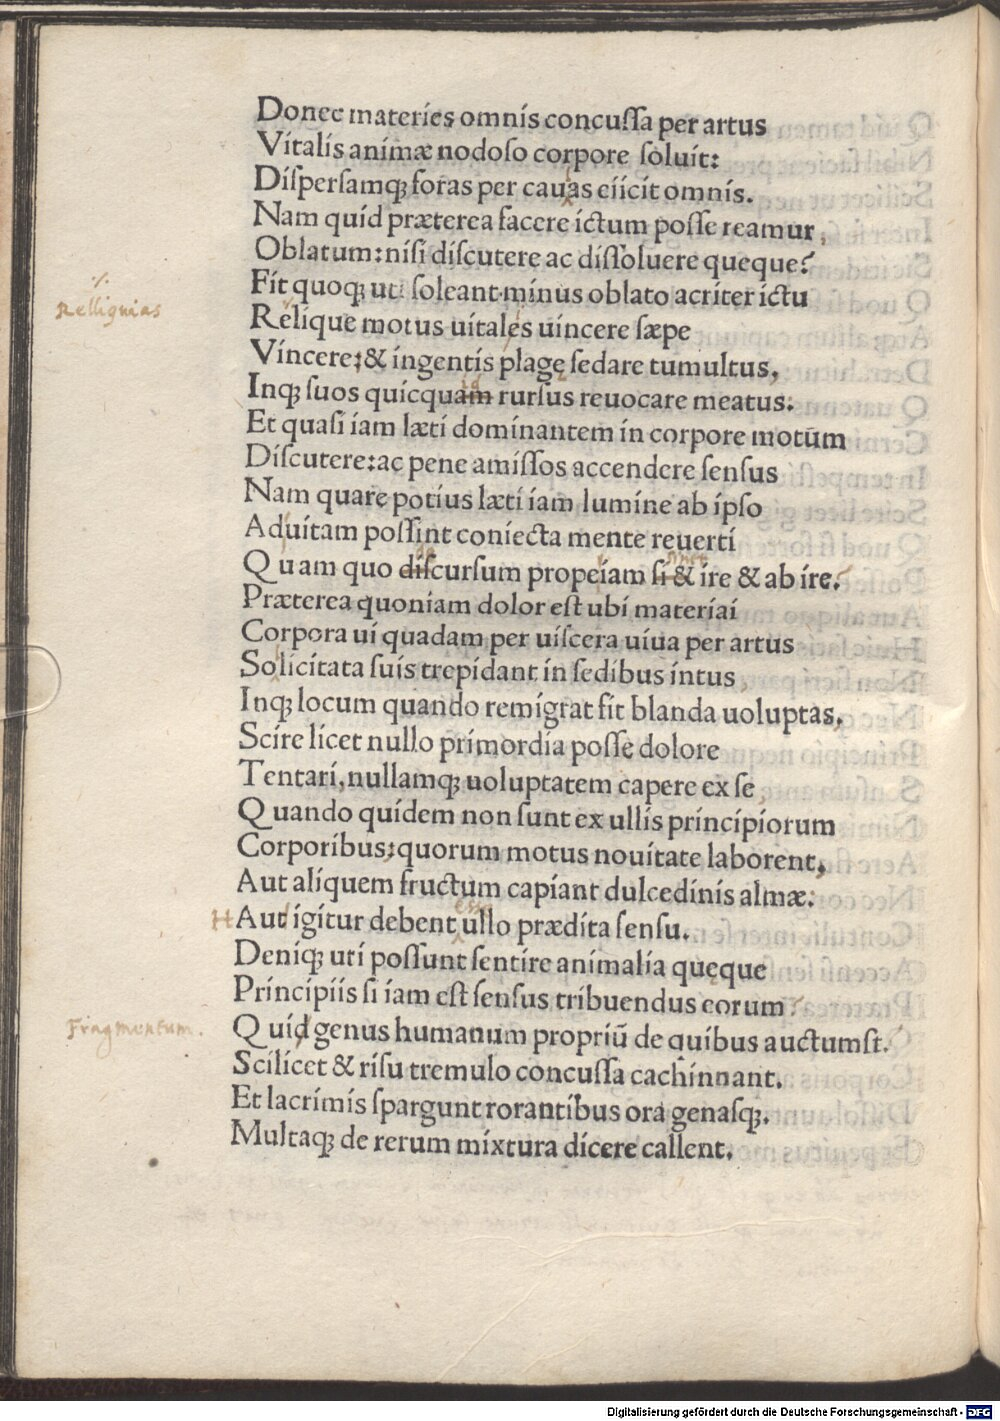 Donec materies omnis concuſſa per artus
Vitalis animæ nodoſo corpore ſoluit:
Diſperſamqꝫ foras per cauas eiicit omnis.
Nam quid præterea facere ictum poſſe reamur,
Oblatum: niſi diſcutere ac diſſoluere queque?
⁒
Fit quoqꝫ uti ſoleant minus oblato acriter ictu
Relliquias
Relique motus uitales uincere ſæpe
Vincere: & ingentis plagę ſedare tumultus,
Inqꝫ ſuos quicquam rurſus reuocare meatus.
Et quaſi iam læti dominantem in corpore motūm
Diſcutere: ac pene amiſſos accendere ſenſus
Nam quare potius læti iam lumine ab ipſo
Ad uitam poſſint coniecta mente reuerti
Quam quo diſcurſum prope iam ſi & ire & ab ire?
Præterea quoniam dolor eſt ubi materiai
Corpora ui quadam per uiſcera uiua per artus
Solicitata ſuis trepidant in ſedibus intus,
Inqꝫ locum quando remigrat fit blanda uoluptas,
Scire licet nullo primordia poſſe dolore
Tentari, nullamqꝫ uoluptatem capere ex ſe,
Quando quidem non ſunt ex ullis principiorum
Corporibus: quorum motus nouitate laborent,
Aut aliquem fructum capiant dulcedinis almæ:
esse
H Aut igitur debent ullo prædita ſenſu.
Deniqꝫ uti poſſunt ſentire animalia quęque
Principiis ſi iam eſt ſenſus tribuendus eorum?
Fragmentum.
Quid genus humanum propriū de quibus auctumſt?
Scilicet & riſu tremulo concuſſa cachinnant.
Et lacrimis ſpargunt rorantibus ora genaſqꝫ.
Multaqꝫ de rerum mixtura dicere callent.
Digitalisierung gefördert durch die Deutsche Forschungsgemeinschaft - DFG